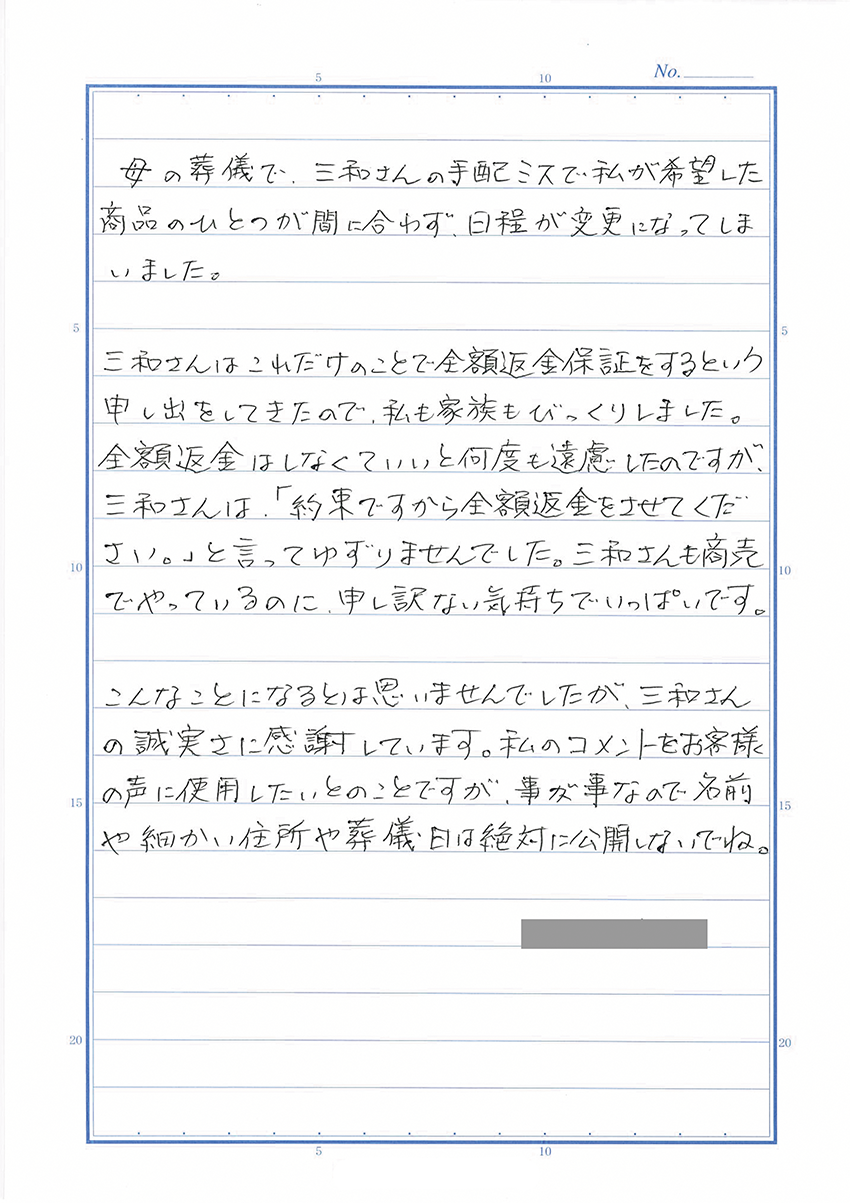 5 10 No.
母の葬儀で、三和さんの手配ミスで私が希望した
商品のひとつが間に合わず、日程が変更になってしま
いました。
5 5
三和さんはこれだけのことで全額返金保証をするという
申し出をしてきたので、私も家族もびっくりしました。
全額返金はしなくていいと何度も遠慮したのですが、
三和さんは、「約束ですから全額返金をさせてくだ
さい。」と言ってゆずりませんでした。三和さんも商売
10 10
でやっているのに、申し訳ない気持ちでいっぱいです。
こんなことになるとは思いませんでしたが、三和さん
の誠実さに感謝しています。私のコメントをお客様
の声に使用したいとのことですが、事が事なので名前
15 15
や細かい住所や葬儀日は絶対に公開しないでね。
20 20
5 10